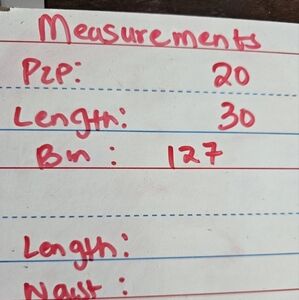 Measurements
P2P: 20
Length: 30
Bin : 127
Length:
Waist :